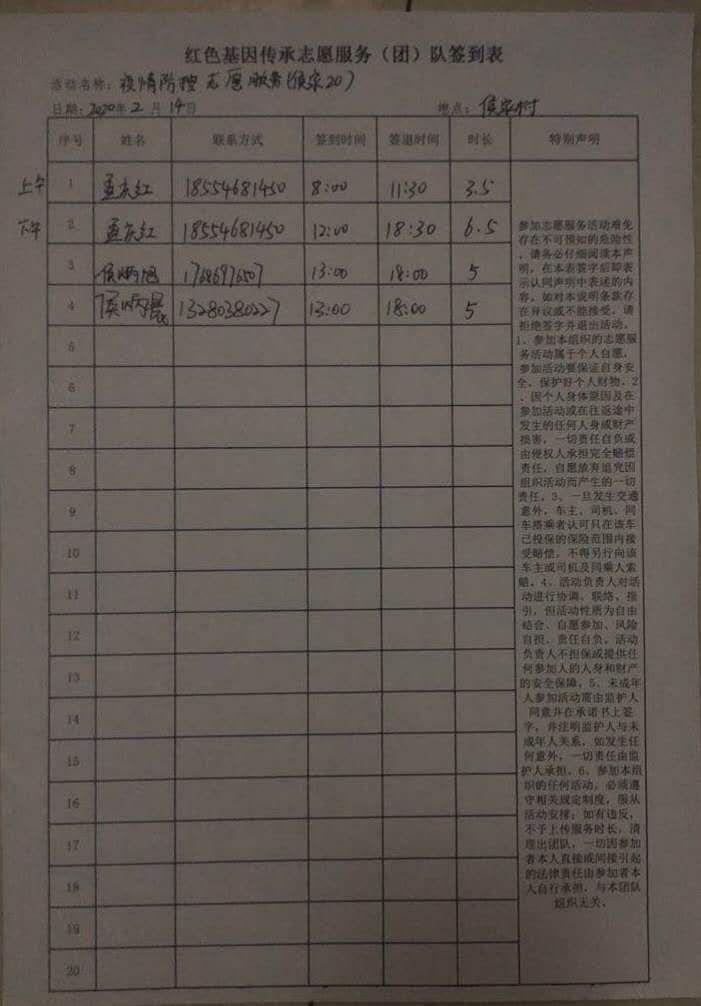 红色基因传承志愿服务（团）队签到表
活动名称：疫情防控志愿服务(侯家20)
日期：2020年2月14日 地点：侯家村
序号 姓名 联系方式 签到时间 签退时间 时长 特别声明
上午 1 孟庆红 18554681450 8:00 11:30 3.5
下午 2 孟庆红 18554681450 12:00 18:30 6.5
3 侯炳旭 17686976507 13:00 18:00 5
4 侯炳晨 13280380227 13:00 18:00 5
5
6
7
8
9
10
11
12
13
14
15
16
17
18
19
20
参加志愿服务活动难免
存在不可预知的危险性
，请务必仔细阅读本声
明，在本表签字后即表
示认同声明中表述的内
容，如对本说明条款存
在异议或不能接受，请
拒绝签字并退出活动。
1、参加本组织的志愿服
务活动属于个人自愿，
参加活动要保证自身安
全，保护好个人财物。2
、因个人身体原因及在
参加活动或在往返途中
发生的任何人身或财产
损害，一切责任自负或
由侵权人承担完全赔偿
责任，自愿放弃追究因
组织活动而产生的一切
责任。3、一旦发生交通
意外，车主、司机、同
车搭乘者认可只在该车
已投保的保险范围内接
受赔偿，不得另行向该
车主或司机及同乘人索
赔。4、活动负责人对活
动进行协调、联络、指
引，但活动性质为自由
结合、自愿参加、风险
自担、责任自负。活动
负责人不担保或提供任
何参加人的人身和财产
的安全保障。5、未成年
人参加活动需由监护人
同意并在承诺书上签
字，并注明监护人与未
成年人关系，如发生任
何意外，一切责任由监
护人承担。6、参加本组
织的任何活动，必须遵
守相关规定制度，服从
活动安排；如有违反，
不予上传服务时长，清
理出团队，一切因参加
者本人直接或间接引起
的法律责任由参加者本
人自行承担，与本团队
组织无关。